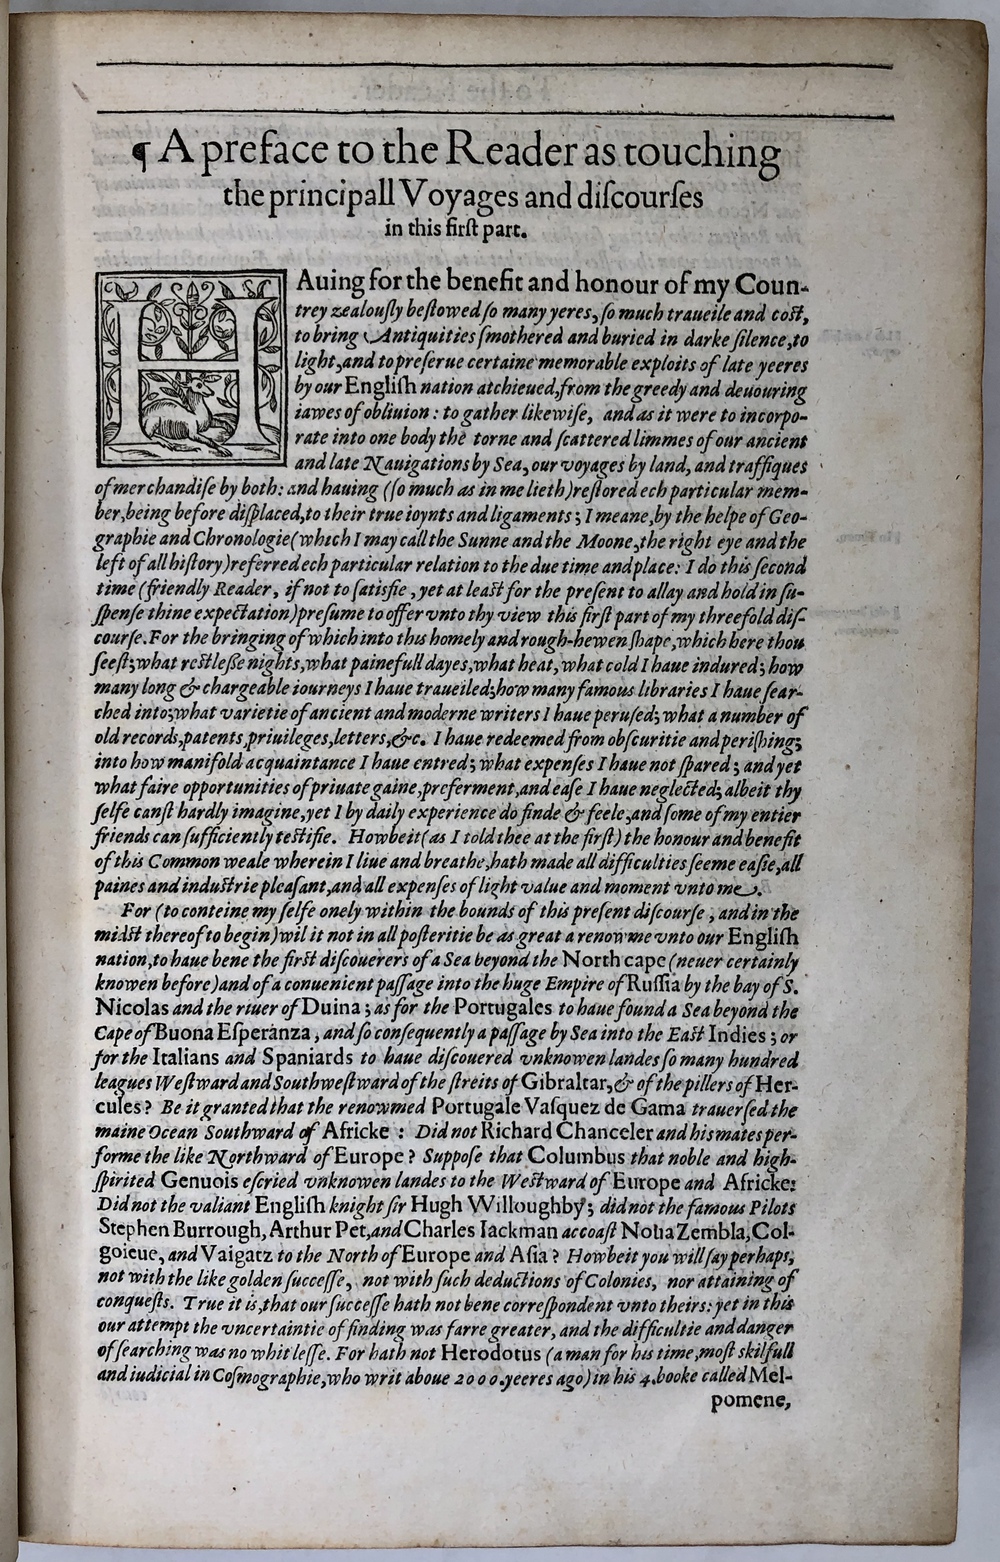 ¶ A preface to the Reader as touching
the principall Voyages and diſcourſes
in this firſt part.
HAuing for the benefit and honour of my Coun-
trey zealouſly beſtowed ſo many yeres, ſo much traueile and coſt,
to bring Antiquities ſmothered and buried in darke ſilence, to
light, and to preſerue certaine memorable exploits of late yeeres
by our Engliſh nation atchieued, from the greedy and deuouring
iawes of obliuion: to gather likewiſe, and as it were to incorpo-
rate into one body the torne and ſcattered limmes of our ancient
and late Nauigations by Sea, our voyages by land, and traffiques
of merchandiſe by both: and hauing (ſo much as in me lieth) reſtored ech particular mem-
ber, being before diſplaced, to their true ioynts and ligaments; I meane, by the helpe of Geo-
graphie and Chronologie (which I may call the Sunne and the Moone, the right eye and the
left of all hiſtory) referred ech particular relation to the due time and place: I do this ſecond
time (friendly Reader, if not to ſatisfie, yet at leaſt for the preſent to allay and hold in ſu-
ſpenſe thine expectation) preſume to offer vnto thy view this firſt part of my threefold diſ-
courſe. For the bringing of which into this homely and rough-hewen ſhape, which here thou
ſeeſt; what reſtleſſe nights, what painefull dayes, what heat, what cold I haue indured; how
many long & chargeable iourneys I haue traueiled; how many famous libraries I haue ſear-
ched into; what varietie of ancient and moderne writers I haue peruſed; what a number of
old records, patents, priuileges, letters, &c. I haue redeemed from obſcuritie and periſhing;
into how manifold acquaintance I haue entred; what expenſes I haue not ſpared; and yet
what faire opportunities of priuate gaine, preferment, and eaſe I haue neglected; albeit thy
ſelfe canſt hardly imagine, yet I by daily experience do finde & feele, and ſome of my entier
friends can ſufficiently teſtifie. Howbeit (as I told thee at the firſt) the honour and benefit
of this Common weale wherein I liue and breathe, hath made all difficulties ſeeme eaſie, all
paines and induſtrie pleaſant, and all expenſes of light value and moment vnto me.
For (to conteine my ſelfe onely within the bounds of this preſent diſcourſe, and in the
midſt thereof to begin) wil it not in all poſteritie be as great a renowme vnto our Engliſh
nation, to haue bene the firſt diſcouerers of a Sea beyond the North cape (neuer certainly
knowen before) and of a conuenient paſſage into the huge Empire of Ruſſia by the bay of S.
Nicolas and the riuer of Duina; as for the Portugales to haue found a Sea beyond the
Cape of Buona Eſperanza, and ſo conſequently a paſſage by Sea into the Eaſt Indies; or
for the Italians and Spaniards to haue diſcouered vnknowen landes ſo many hundred
leagues Weſtward and Southweſtward of the ſtreits of Gibraltar, & of the pillers of Her-
cules? Be it granted that the renowmed Portugale Vaſquez de Gama trauerſed the
maine Ocean Southward of Africke: Did not Richard Chanceler and his mates per-
forme the like Northward of Europe? Suppoſe that Columbus that noble and high-
ſpirited Genuois eſcried vnknowen landes to the Weſtward of Europe and Africke:
Did not the valiant Engliſh knight ſir Hugh Willoughby; did not the famous Pilots
Stephen Burrough, Arthur Pet, and Charles Iackman accoaſt Noua Zembla, Col-
goieue, and Vaigatz to the North of Europe and Aſia? Howbeit you will ſay perhaps,
not with the like golden ſucceſſe, not with ſuch deductions of Colonies, nor attaining of
conqueſts. True it is, that our ſucceſſe hath not bene correſpondent vnto theirs: yet in this
our attempt the vncertaintie of finding was farre greater, and the difficultie and danger
of ſearching was no whit leſſe. For hath not Herodotus (a man for his time, moſt skilfull
and iudicial in Coſmographie, who writ aboue 2000. yeeres ago) in his 4. booke called Mel-
pomene,